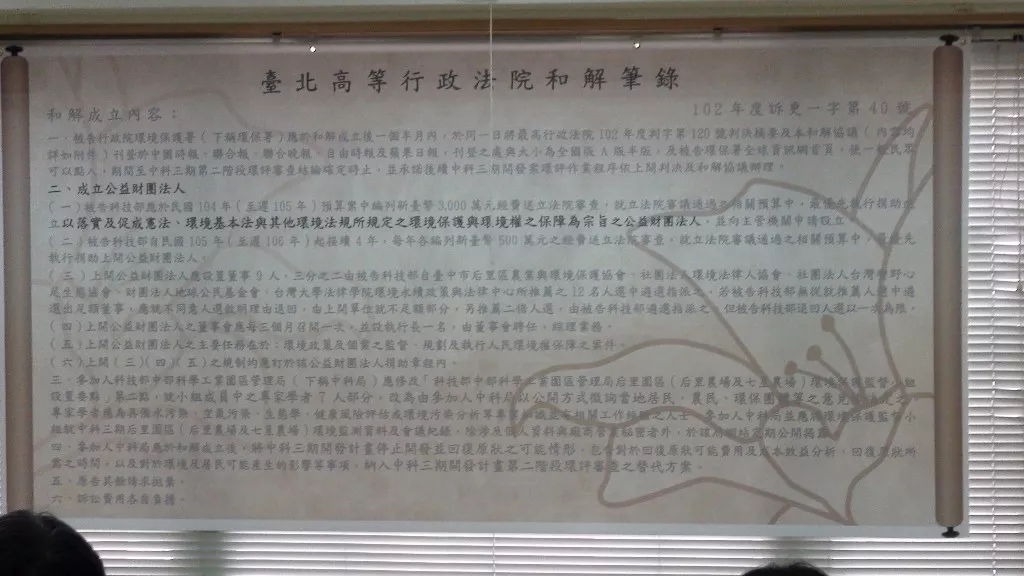 臺北高等行政法院和解筆錄
和解成立內容：
102年度訴更一字第40號
一、被告行政院環境保護署(下稱環保署)應於和解成立後一個半月內，於同一日將最高行政法院102年度判字第120號判決摘要及本和解協議(內容均
詳如附件)刊登於中國時報、聯合報、聯合晚報、自由時報及蘋果日報，刊登之處與大小為全國版A版半版，及被告環保署全球資訊網首頁，使一般民眾
可以點入，期間至中科三期第二階段環評審查結論確定時止，並承諾後續中科三期開發案環評作業程序依上開判決及和解協議辦理。
二、成立公益財團法人
(一)被告科技部應於民國104年(至遲105年)預算案中編列新臺幣3,000萬元經費送立法院審查，就立法院審議通過之相關預算中，最優先執行捐助成
立以落實及促成憲法、環境基本法與其他環境法規所規定之環境保護與環境權之保障為宗旨之公益財團法人，並向主管機關申請設立。
(二)被告科技部自民國105年(至遲106年)起接續4年，每年各編列新臺幣500萬元之經費送立法院審查，就立法院審議通過之相關預算中，最優先
執行捐助上開公益財團法人。
(三)上開公益財團法人應設置董事9人，三分之二由被告科技部自臺中市后里區農業與環境保護協會、社團法人環境法律人協會、社團法人台灣蠻野心
足生態協會、財團法人地球公民基金會、台灣大學法律學院環境永續政策與法律中心所推薦之12名人選中遴選指派之。若被告科技部無從就推薦人選中遴
選出足額董事，應就不同意人選敘明理由退回，由上開單位就不足額部分，另推薦二倍人選，由被告科技部遴選指派之，但被告科技部退回人選以一次為限。
(四)上開公益財團法人之董事會應每三個月召開一次，並設執行長一名，由董事會聘任，綜理業務。
(五)上開公益財團法人之主要任務在於：環境政策及個案之監督、規劃及執行人民環境權保障之案件。
(六)上開(三)(四)(五)之規制均應訂於該公益財團法人捐助章程內。
三、參加人科技部中部科學工業園區管理局(下稱中科局)應修改「科技部中部科學工業園區管理局后里園區(后里農場及七星農場)環境保護監督小組
設置要點」第二點，就小組成員中之專家學者7人部分，改為由參加人中科局以公開方式徵詢當地居民、農民、環保團體等之意見
專家學者應為具備水污染、空氣污染、生態學、健康風險評估或環境污染分析等專業知識並有相關工作經驗之人士。參加人中科局並應將環境保護監督小
組就中科三期后里園區(后里農場及七星農場)環境監測資料及會議紀錄，除涉及個人資料與廠商營業秘密者外，於該局網站定期公開揭露。
四、參加人中科局應於和解成立後，將中科三期開發計畫停止開發並回復原狀之可能情形，包含對於回復原狀可能費用及成本效益分析、回復原狀所
需之時間，以及對於環境及居民可能產生的影響等事項，納入中科三期開發計畫第二階段環評審查之替代方案。
五、原告其餘請求拋棄。
六、訴訟費用各自負擔。